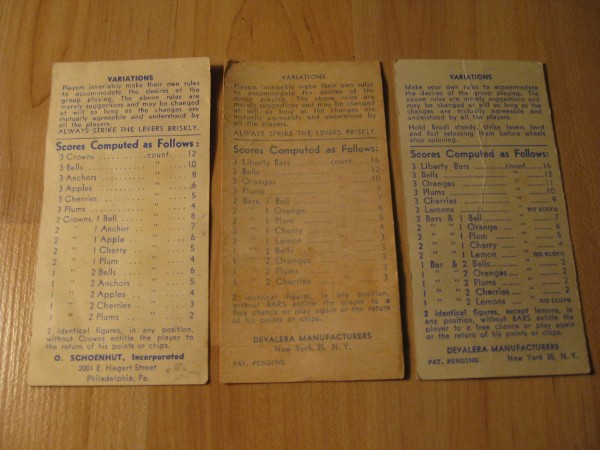 VARIATIONS
Players invariably make their own rules
to accommodate the desires of the
group playing. The above rules are
merely suggestions and may be changed
at will to long as the changes are
mutually agreeable and understood by
all the players.
ALWAYS STRIKE THE LEVERS BRISKLY.
Scores Computed as Follows:
3 Crowns count 12
3 Bells " 10
3 Anchors " 8
3 Apples " 6
3 Cherries " 5
3 Plums " 4
2 Crowns, 1 Bell " 8
2 " 1 Anchor " 7
2 " 1 Apple " 6
2 " 1 Cherry " 5
2 " 1 Plum " 4
1 " 2 Bells " 6
1 " 2 Anchors " 5
1 " 2 Apples " 4
1 " 2 Cherries " 3
1 " 2 Plums " 2
2 identical figures, in any position,
without Crowns entitle the player to
the return of his points or chips.
O. SCHOENHUT, Incorporated
2001 E. Hagert Street
Philadelphia, Pa.
VARIATIONS
Players invariably make their own rules
to accommodate the desires of the
group playing. The above rules are
merely suggestions and may be changed
at will to long as the changes are
mutually agreeable and understood by
all the players.
ALWAYS STRIKE THE LEVERS BRISKLY.
Scores Computed as Follows:
3 Liberty Bars count 16
3 Bells " 12
3 Oranges " 10
3 Plums "
2 Bars, 1 Bell "
2 " 1 Orange "
2 " 1 Plum " 5
2 " 1 Cherry " 4
2 " 1 Lemon " 3
1 " 2 Bells "
1 " 2 Oranges " 2
1 " 2 Plums " 2
1 " 2 Cherries "
2 identical figures, in any position,
without BARS entitle the player to a
free chance or play again or the return
of his points or chips.
DEVALERA MANUFACTURERS
New York 35, N. Y.
PAT. PENDING
VARIATIONS
Make your own rules to accommodate
the desires of the group playing. The
above rules are merely suggestions and
may be changed at will so long as the
changes are mutually agreeable and
understood by all the players.
Hold Bandi steady, strike levers hard
and fast releasing them before wheels
stop spinning.
Scores Computed as Follows:
3 Liberty Bars count 16
3 Bells " 12
3 Oranges " 11
3 Plums " 10
3 Cherries " 9
3 Lemons " no score
2 Bars & 1 Bell " 7
2 " " 1 Orange " 6
2 " " 1 Plum " 5
2 " " 1 Cherry " 4
2 " " 1 Lemon " no score
1 Bar & 2 Bells "
1 " " 2 Oranges " 2
1 " " 2 Plums " 2
1 " " 2 Cherries " 2
1 " " 2 Lemons " no score
2 identical figures, except lemons, in
any position, without BARS entitle the
player to a free chance or play again
or the return of his points or chips.
DEVALERA MANUFACTURERS
PAT. PENDING New York 35, N. Y.